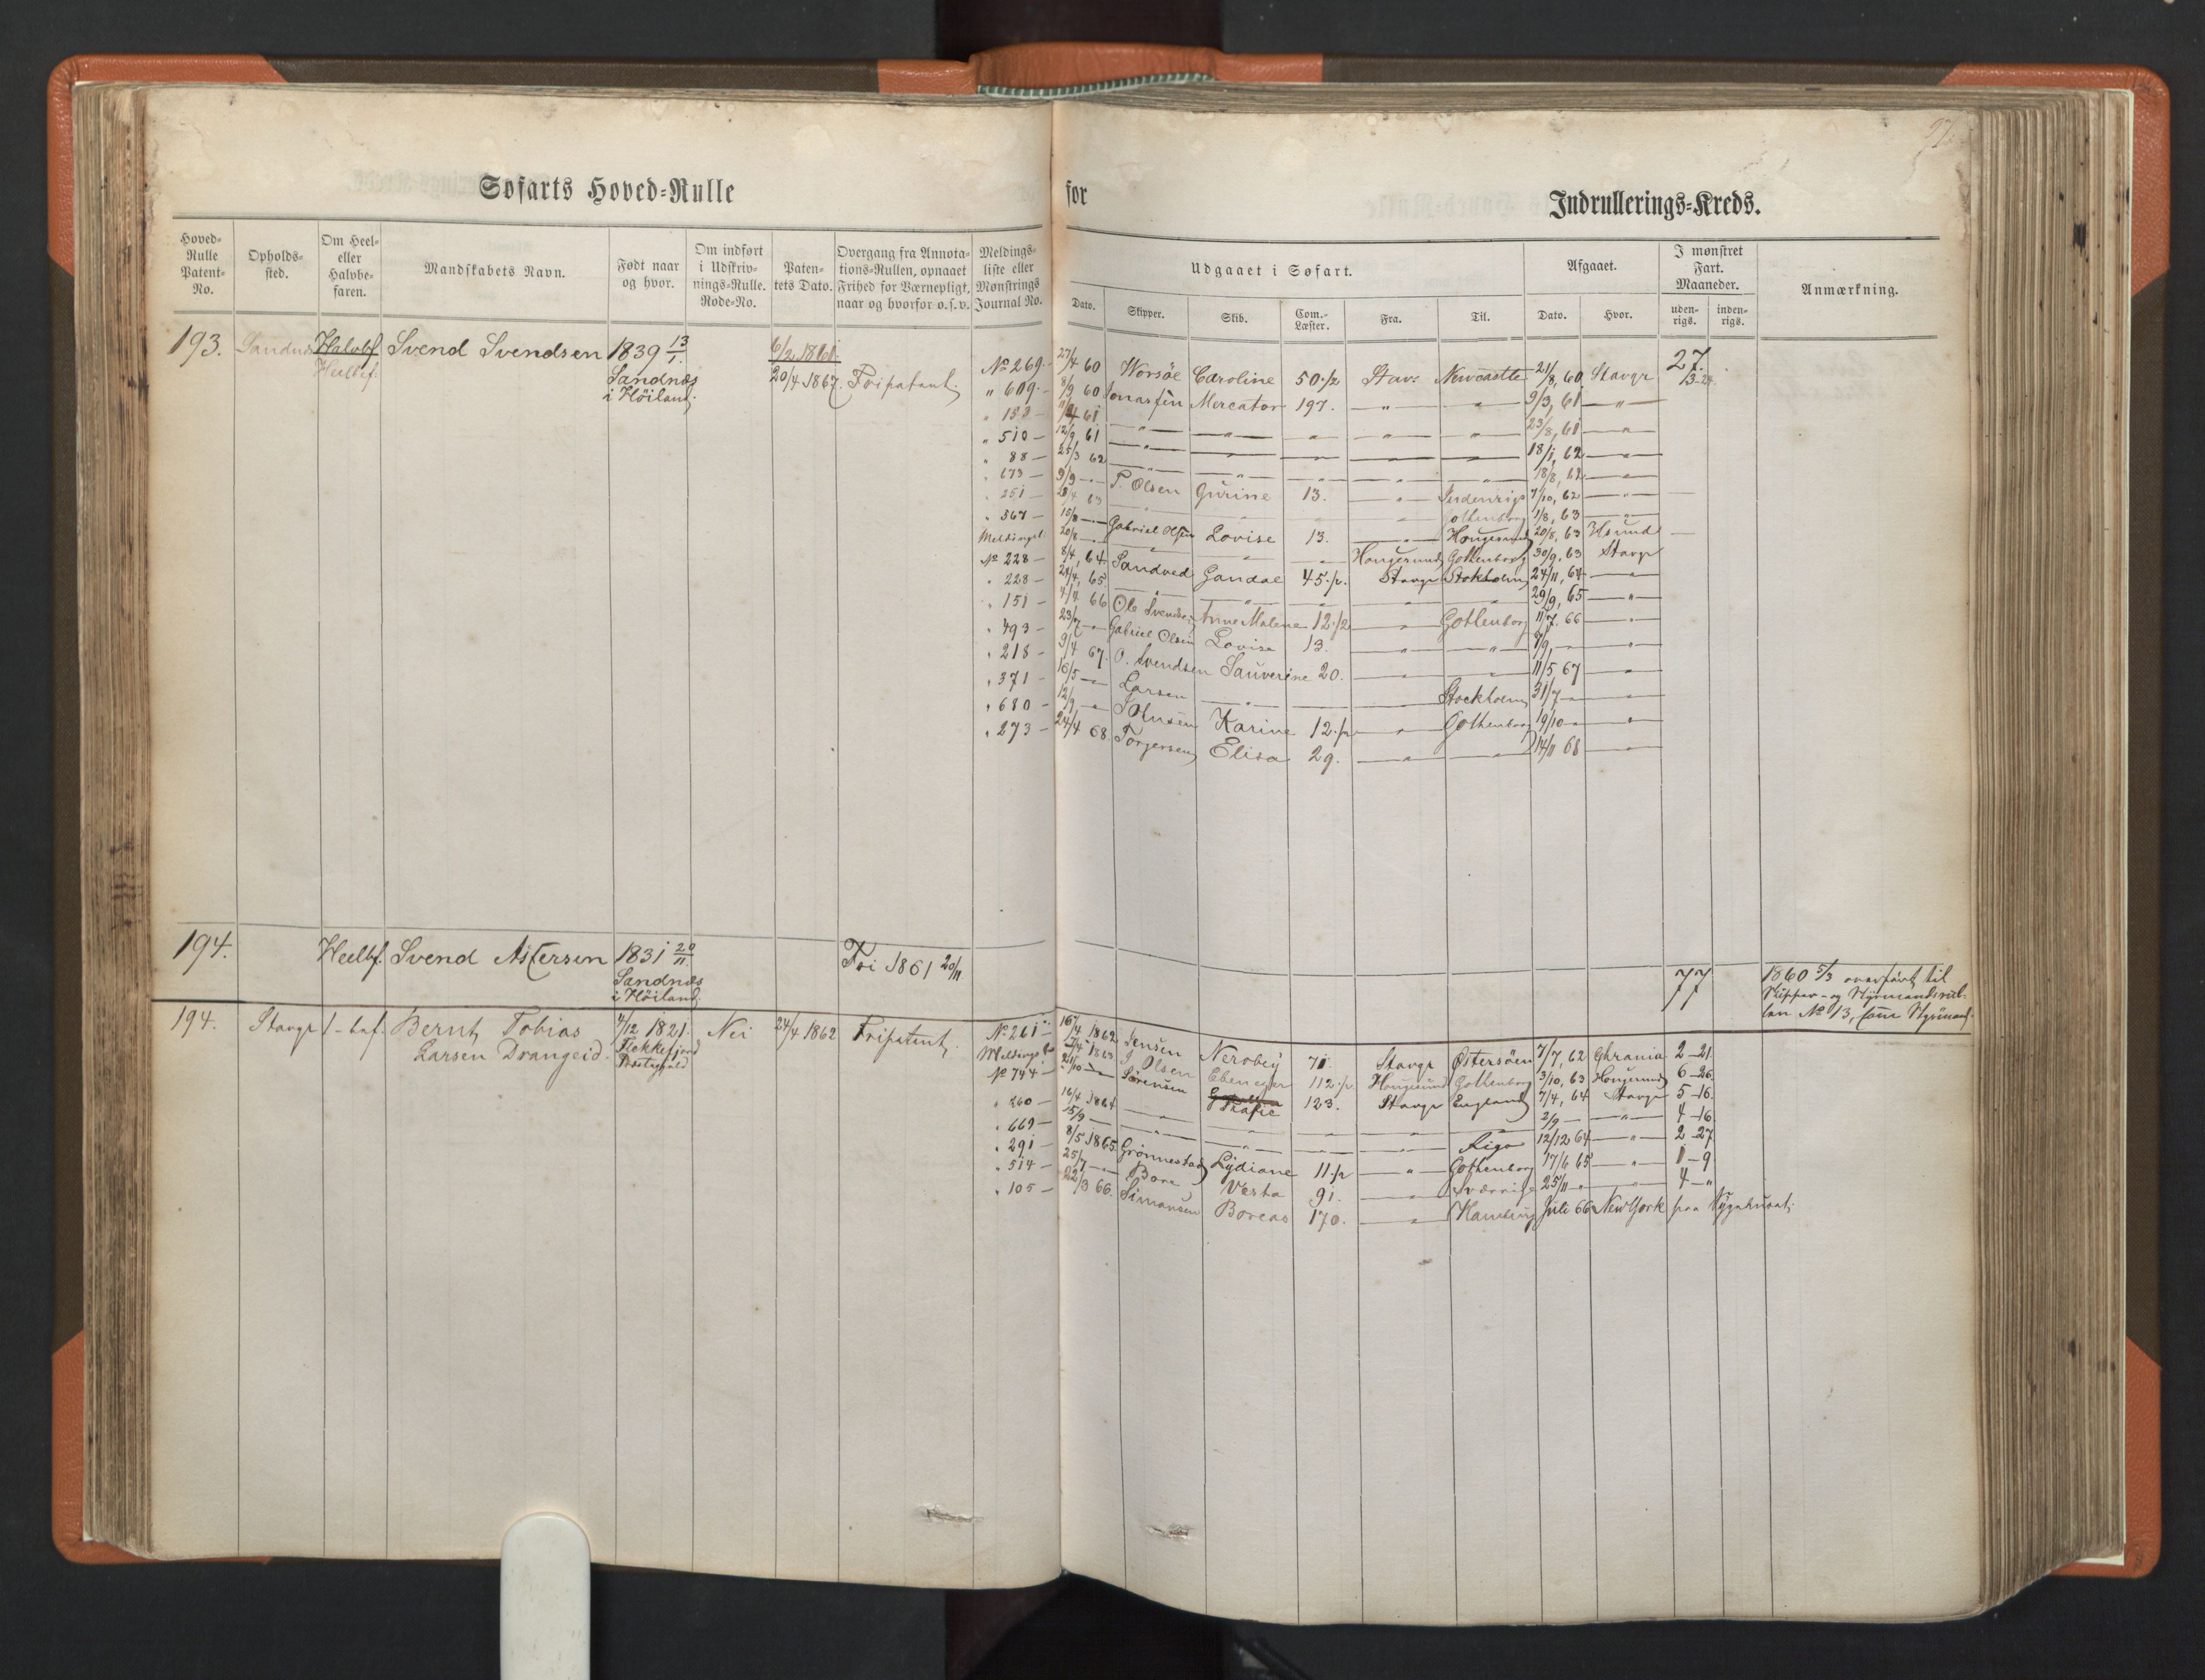 97.
Søfarts Hoved-Rulle for Indrullerings-Kreds.
Hoved-Rulle Patent-No.
Opholds-sted.
Om Heel- eller Halvbe-faren.
Mandskabets Navn.
Født naar og hvor.
Om indført i Udskriv-nings-Rulle. Rode-No.
Paten-tets Dato.
Overgang fra Annota-tions-Rullen, opnaaet Frihed for Værnepligt, naar og hvorfor o.s.v.
Meldings-liste eller Mønstrings Journal No.
Udgaaet i Søfart.
Dato. Skipper. Skib. Com.-Læster. Fra. Til.
Afgaaet.
Dato. Hvor.
I mønstret Fart. Maaneder.
uden-rigs. inden-rigs.
Anmærkning.
193. Sandnes Halvbf. Svend Svendsen 1839 13/1. 6/2 1861
Heelbf. Sandnæs 20/4 1867. Fripatent.
i Höiland.
No 269 - 27/4 60 Worsöe Caroline 50 1/2 Stavr Newcastle 21/8, 60 Stavgr 27.
" 609 - 8/9 60 Jonassen Mercator 197. - " - - " - 9/3, 61 - " - 13-24.
" 188 - 61 - " - - " - - " - - " - - " - 23/8, 61 - " -
" 510 - 12/9 61 - " - - " - - " - - " - - " - 18/1, 62 - " -
" 88 - 25/3 62 - " - - " - - " - - " - - " - 18/8, 62 - " -
" 673 - 9/9 - " - T. Olsen Gurine 13. - " - Indenrigs 7/10, 62 - " -
" 251 - 63 - " - - " - - " - Gothenborg 1/8, 63 - " -
" 567 - 15/8 - " - Gabriel Olsen Lovise 13. - " - Haugesund 20/8, 63 Hsund
Meldingsl. 20/8 - " - - " - - " - Haugesund Gothenborg 30/9, 63 Stavgr
No 228 - 8/4, 64 Sandved Gandal 45 1/2. Stavgr Stokholm 24/11, 64 - " -
" 228 - 24/4, 65 - " - - " - - " - - " - - " - 29/9, 65 - " -
" 151 - 4/4 66 Ole Svendsen Anne Malene 12 1/2 - " - Gothenborg 11/7. 66 - " -
" 493 - 23/7 - " - Gabriel Olsen Lovise 13. - " - - " - 7/9, - " - - " -
" 218 - 9/4 67. O. Svendsen Sauverine 20. - " - - " - 11/5 67 - " -
" 371 - 16/5 - " - Larsen - " - - " - - " - Stockholm 31/7 - " - - " -
" 680 - 12/9 - " - Karine 12 1/2 - " - Gothenborg 19/10 - " - - " -
" 273 - 24/4 68. Torjersen Elisa 29. - " - - " - 14/11 68 - " -
194. Heelbf. Svend Astersen 1831 20/11 Fri 1861 20/11 77 1860 5/3 overført til
Sandnæs Skipper- og Styrmandsrul-
i Höiland. len No 13, som Styrmand.
194. Stavgr Bernt Tobias 4/12 1821. Nei 24/4 1862 Fripatent.
Larsen Drangeid. Flekkefjord
Præstegjeld
No 261 - 16/4 1862 Jensen 71. Stavgr Østersöen 7/7, 62 2-21.
Meldingsl. 1863 J. Olsen Ebenezer 112 1/2. Haugesund Gothenborg 3/10, 63 Haugesund 6-26.
No 744 - 21/10 - " - Sörensen Trafic 123. Stavgr England 7/4, 64 Stavgr 5-16.
" 260 - 16/4 1864 - " - - " - - " - - " - - " - 2/9 - - " - 4-16
" 669 - 15/9 - - " - - " - - " - - " - Riga 12/12 64 - " - 2-27
" 291 - 8/5 1865 Grönnestad Lydiane 11 1/2 - " - Gothenborg 17/6 65 - " - 1-9
" 514 - 25/7 - " - Bore Vesta 91. - " - Sverrige 25/11 - " - - " - 4-"
" 105 - 22/3 66. Simonsen Boreas 170. - " - Hamburg Juli 66 New York paa Sygehuset.